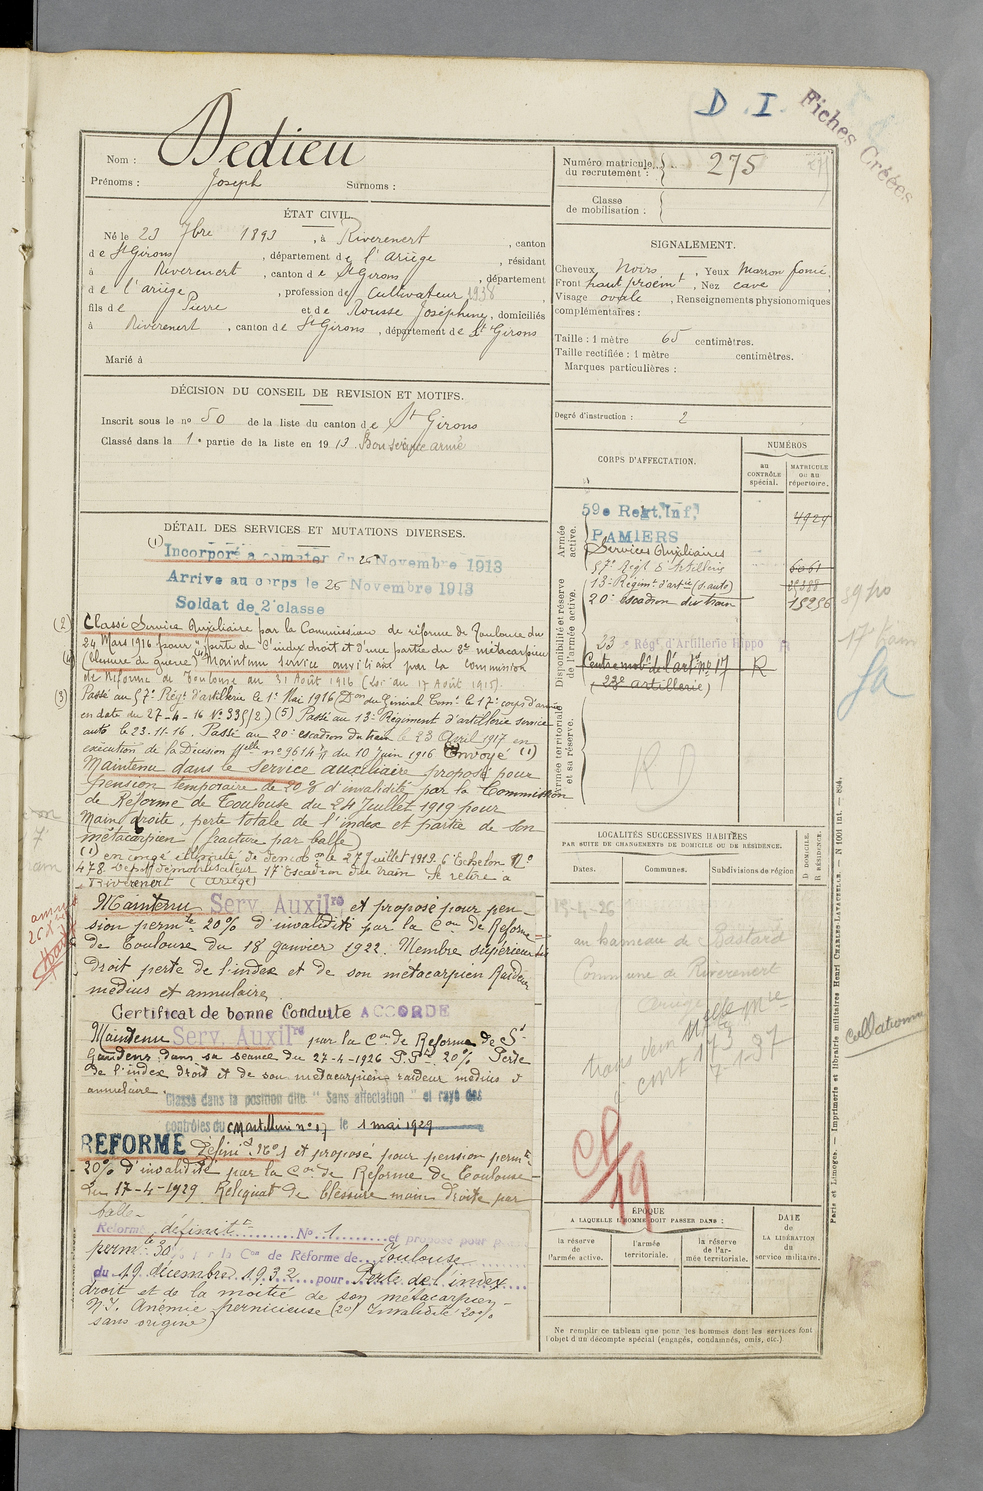 D.I.
Fiches Créées
Nom : Dedieu
Prénoms : Joseph Surnoms :
ÉTAT CIVIL.
Né le 23 7bre 1893, à Riverenert, canton
de St Girons, département de l'Ariège, résidant
à Riverenert, canton de St Girons, département
de l'ariège, profession de Cultivateur 1938,
fils de Pierre et de Rousse Joséphine, domiciliés
à Riverenert, canton de St Girons, département de St Girons
Marié à
DÉCISION DU CONSEIL DE REVISION ET MOTIFS.
Inscrit sous le no 50 de la liste du canton de St Girons
Classé dans la 1e partie de la liste en 1913. Bon service armé
DÉTAIL DES SERVICES ET MUTATIONS DIVERSES.
(1) Incorporé a compter du 26 Novembre 1913
Arrive au corps le 26 Novembre 1913
Soldat de 2e classe
(2) Classé Service Auxiliaire par la Commission de réforme de Toulouse du
24 Mars 1916 pour perte de l'index droit et d'une partie du 2e métacarpien
(blessure de guerre) Maintenu service auxiliaire par la commission
de Réforme de Toulouse du 31 Août 1916 (Loi du 17 Août 1915).
(3) Passé au 57e Régt d'artillerie le 1er Mai 1916 (Don du Général Comt le 17e corps d'armée
en date du 27-4-16 No 335/2.) (5) Passé au 13e Régiment d'artillerie service
auto le 23.11.16. Passé au 20e escadron du train le 23 Avril 1917 en
exécution de la Décision Mlle no 9614 du 10 Juin 1916 Envoyé (1)
Maintenu dans le Service auxiliaire proposé pour
pension temporaire de 20% d'invalidité par la Commission
de Réforme de Toulouse du 24 Juillet 1919 pour
Main droite, perte totale de l'index et partie de son
métacarpien (fracture par balle)
(1) en congé illimité de démob on le 27 Juillet 1919. 6e Echelon No
478 Dépôt démobilisateur 17e Escadron du train Se retire à
Riverenert (Ariège)
Maintenu Serv. Auxilre et proposé pour pen-
sion permte 20% d'invalidité par la Con de Réforme
de Toulouse du 18 janvier 1922. Membre supérieur
droit perte de l'index et de son métacarpien Raideur
médius et annulaire.
Certificat de bonne Conduite ACCORDÉ
Maintenu Serv. Auxilre par la Con de Réforme de St
Gaudens dans sa séance du 27-4-1926 P.Pte 20% Perte
de l'index droit et de son métacarpien raideur médius et
annulaire.
Classé dans la position dite " Sans affectation " et rayé des
contrôles du C M artillerie no 17 le 1 mai 1929
REFORMÉ Définit No 1 et proposé pour pension permte
20% d'invalidité par la Con de Réforme de Toulouse
du 17-4-1929 Reliquat de blessure main droite par
balle-
Réformé définitt No 1 et proposé pour
permte 30% la Con de Réforme de Toulouse
du 19 décembre 1932 pour Perte de l'index
droit et de la moitié de son métacarpien-
N.I. Anémie pernicieuse (20) Invalidité 20%
sans origine)
Numéro matricule du recrutement : 275
Classe de mobilisation :
SIGNALEMENT.
Cheveux Noirs, Yeux Marron foncé,
Front haut proémt, Nez cave
Visage ovale, Renseignements physionomiques
complémentaires :
Taille : 1 mètre 65 centimètres.
Taille rectifiée : 1 mètre centimètres.
Marques particulières :
Degré d'instruction : 2
CORPS D'AFFECTATION.
NUMÉROS
au CONTRÔLE spécial.
MATRICULE ou au répertoire.
Armée active.
59e Regt. Inf. 4924
PAMIERS
Services Auxiliaires
57e Régt d'Artillerie 6061
13e Régiment d'artie (s. auto)
20e escadron du train 15256
Disponibilité et réserve de l'armée active.
23 e Régt d'Artillerie Hippo R
Centre mobre de l'artie no 17 R
(23e artillerie)
Armée territoriale et sa réserve.
RD
LOCALITÉS SUCCESSIVES HABITÉES
PAR SUITE DE CHANGEMENTS DE DOMICILE OU DE RÉSIDENCE.
Dates. Communes. Subdivisions de région
D. DOMICILE. R. RÉSIDENCE.
19-4-26
au hameau de Bastard
Commune de Riverenert
Ariège
173
7-1-37
ÉPOQUE
A LAQUELLE L'HOMME DOIT PASSER DANS :
la réserve de l'armée active.
l'armée territoriale.
la réserve de l'armée territoriale.
DATE de LA LIBÉRATION du service militaire.
Ne remplir ce tableau que pour les hommes dont les services font
l'objet d'un décompte spécial (engagés, condamnés, omis, etc.)
Paris et Limoges. — Imprimerie et librairie militaires Henri CHARLES-LAVAUZELLE. — N 1001 int. — 894.